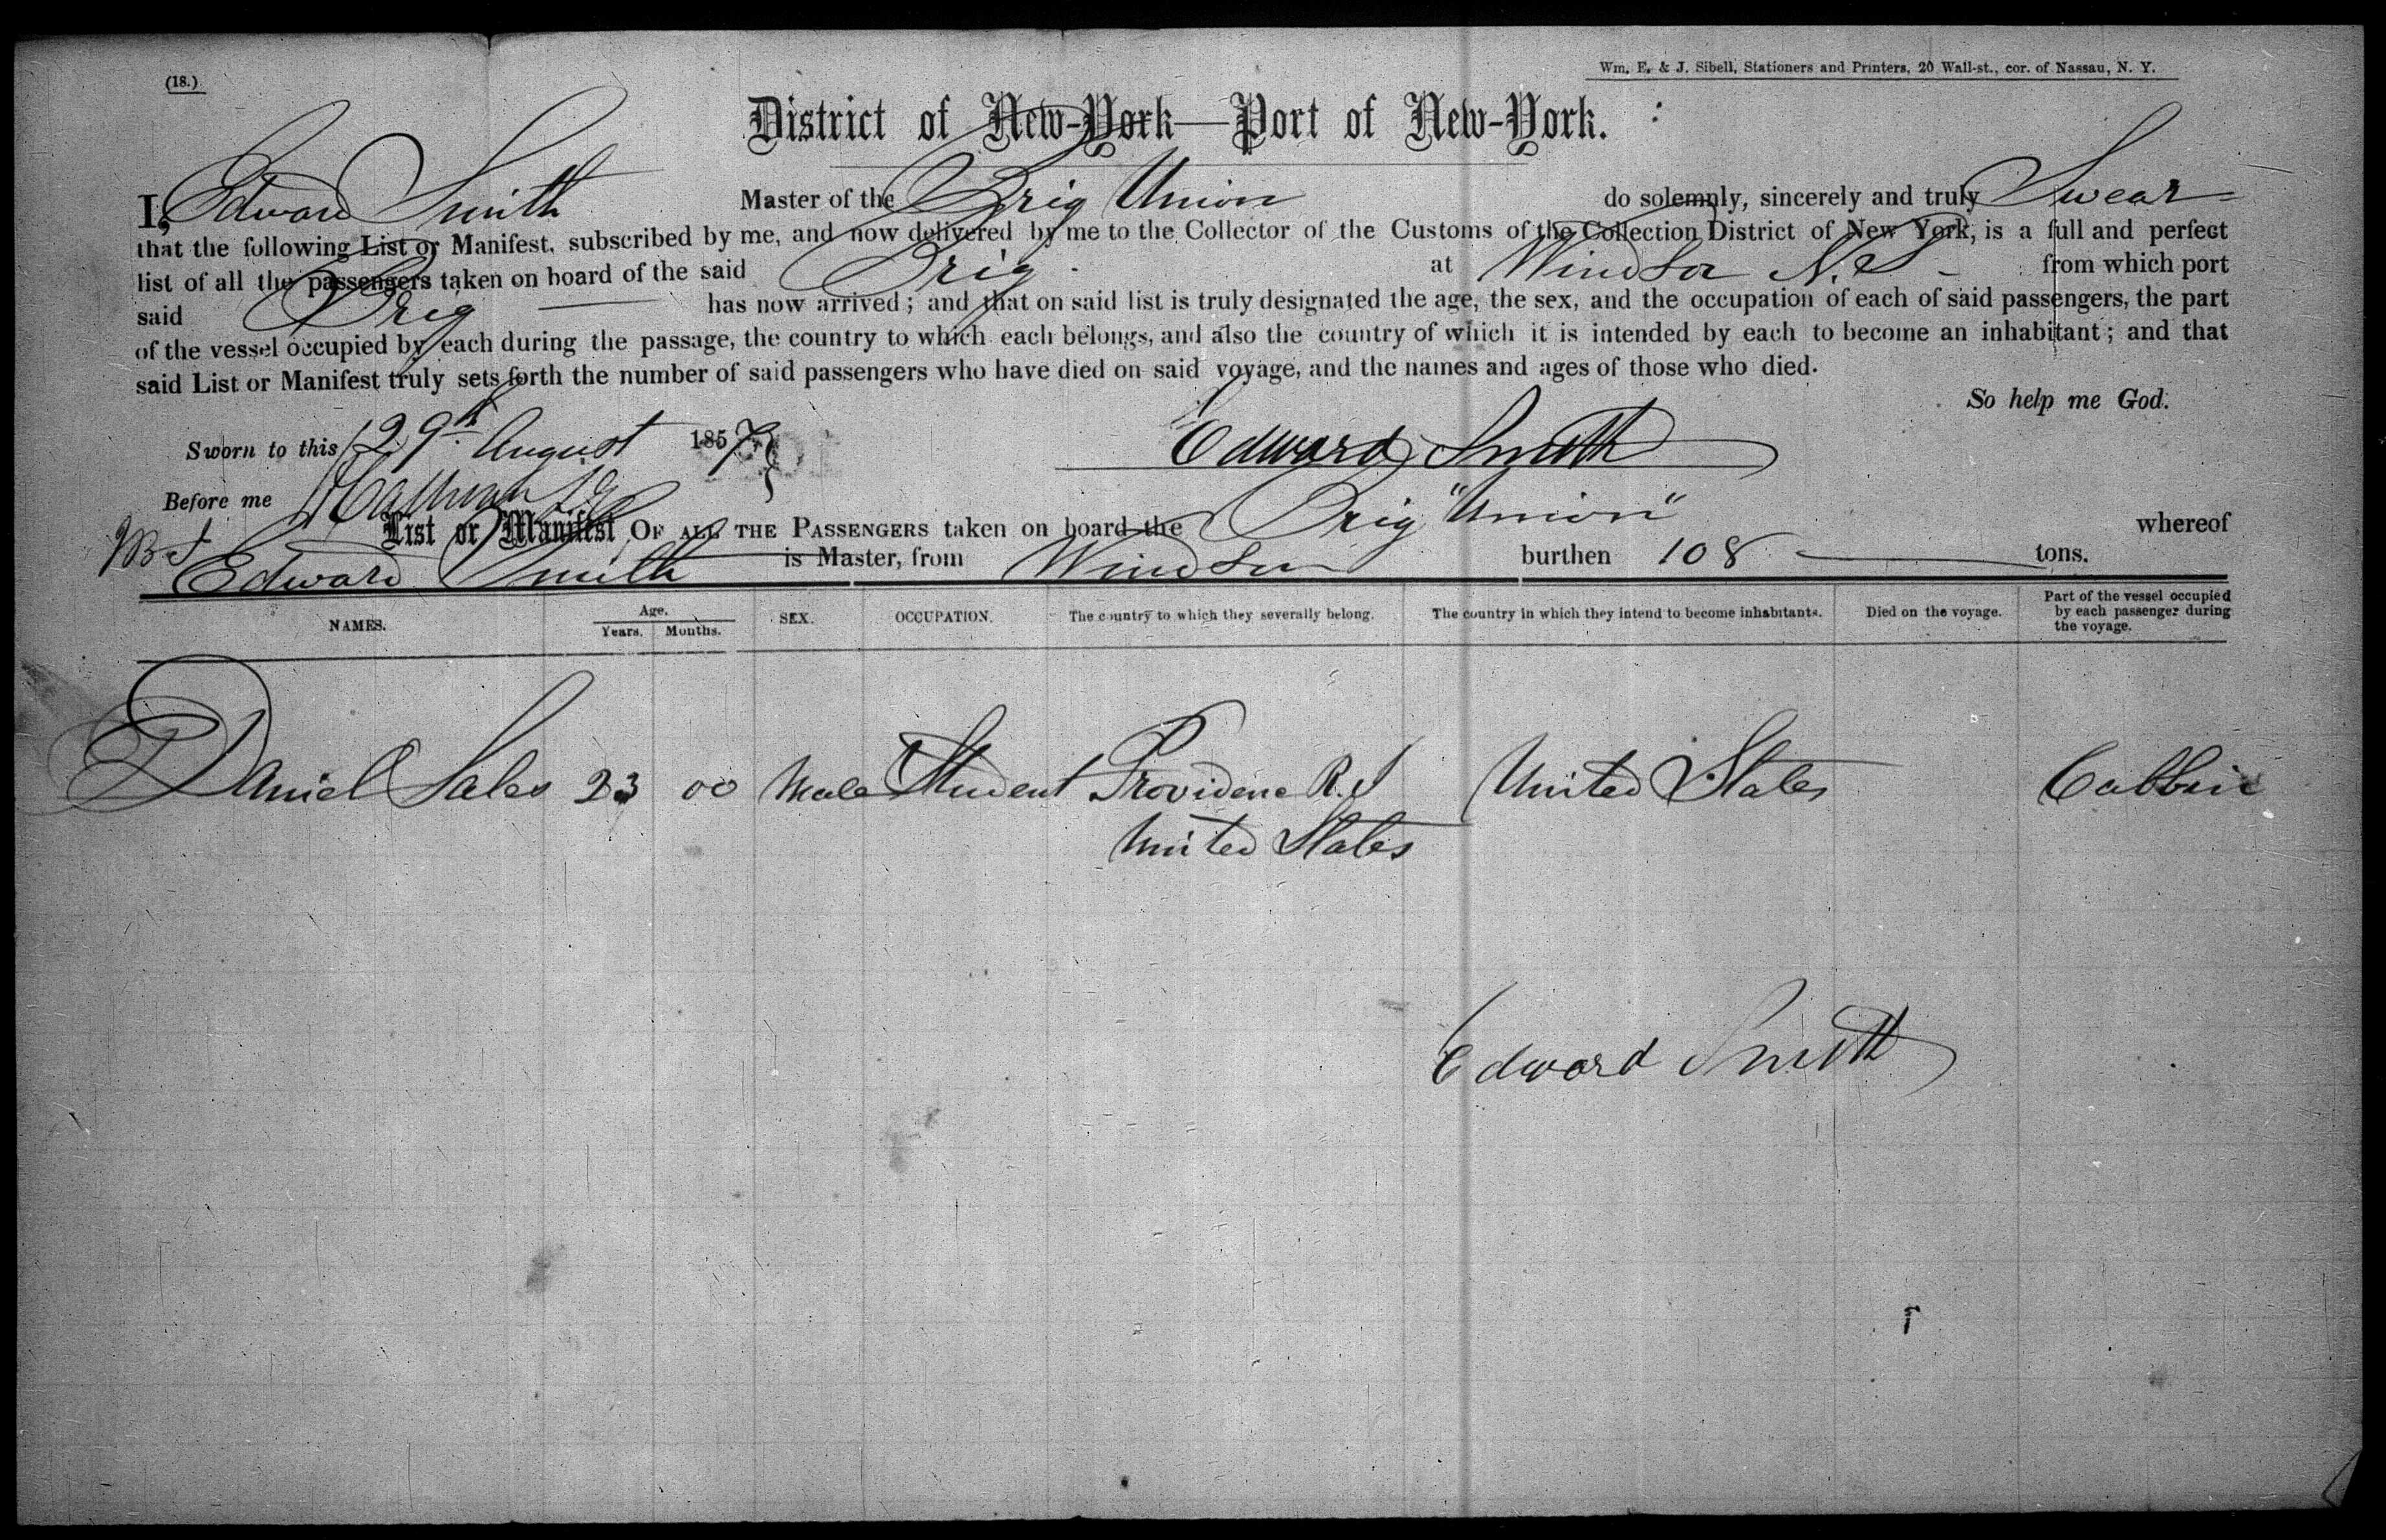 (18.)
Wm. E. & J. Sibell, Stationers and Printers, 20 Wall-st., cor. of Nassau, N. Y.
District of New-York—Port of New-York.
I, Edward Smith Master of the Brig Union do solemnly, sincerely and truly Swear
that the following List or Manifest, subscribed by me, and now delivered by me to the Collector of the Customs of the Collection District of New York, is a full and perfect
list of all the passengers taken on board of the said Brig at Windsor N.S from which port
said Brig has now arrived; and that on said list is truly designated the age, the sex, and the occupation of each of said passengers, the part
of the vessel occupied by each during the passage, the country to which each belongs, and also the country of which it is intended by each to become an inhabitant; and that
said List or Manifest truly sets forth the number of said passengers who have died on said voyage, and the names and ages of those who died.
So help me God.
Sworn to this 29th August 1857 } Edward Smith
Before me
List or Manifest OF ALL THE PASSENGERS taken on board the Brig "Union" whereof
Edward Smith is Master, from Windsor burthen 108 tons.
NAMES. Age. Years. Months. SEX. OCCUPATION. The country to which they severally belong. The country in which they intend to become inhabitants. Died on the voyage. Part of the vessel occupied by each passenger during the voyage.
Daniel Sales 23 00 Male Student Providence R.I United States Cabbin
United States
Edward Smith